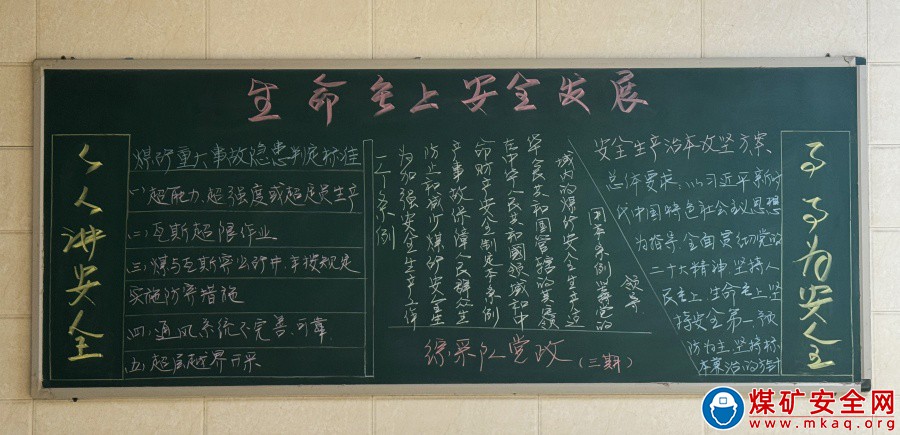 生命至上安全发展
人人讲安全
煤矿重大事故隐患判定标准
(一)超能力、超强度或超定员生产
(二)瓦斯超限作业
(三)煤与瓦斯突出矿井,未按规定
实施防突措施
(四)通风系统不完善、可靠
(五)超层越界开采
二十条例
为加强安全生产工作
防止和减少煤矿安全生
产事故保障人民群众生
命财产安全制定本条例
在中华人民共和国领域和中
华人民共和国管辖的其他领
域内的煤矿安全生产适
用本条例坚持党的
领导
综采队党政
(三期)
安全生产治本攻坚方案
总体要求:以习近平新时
代中国特色社会主义思想
为指导,全面贯彻党的
二十大精神,坚持人
民至上、生命至上,坚
持安全第一、预
防为主,坚持标
本兼治的方针
事事为安全
煤矿安全网
www.mkaq.org